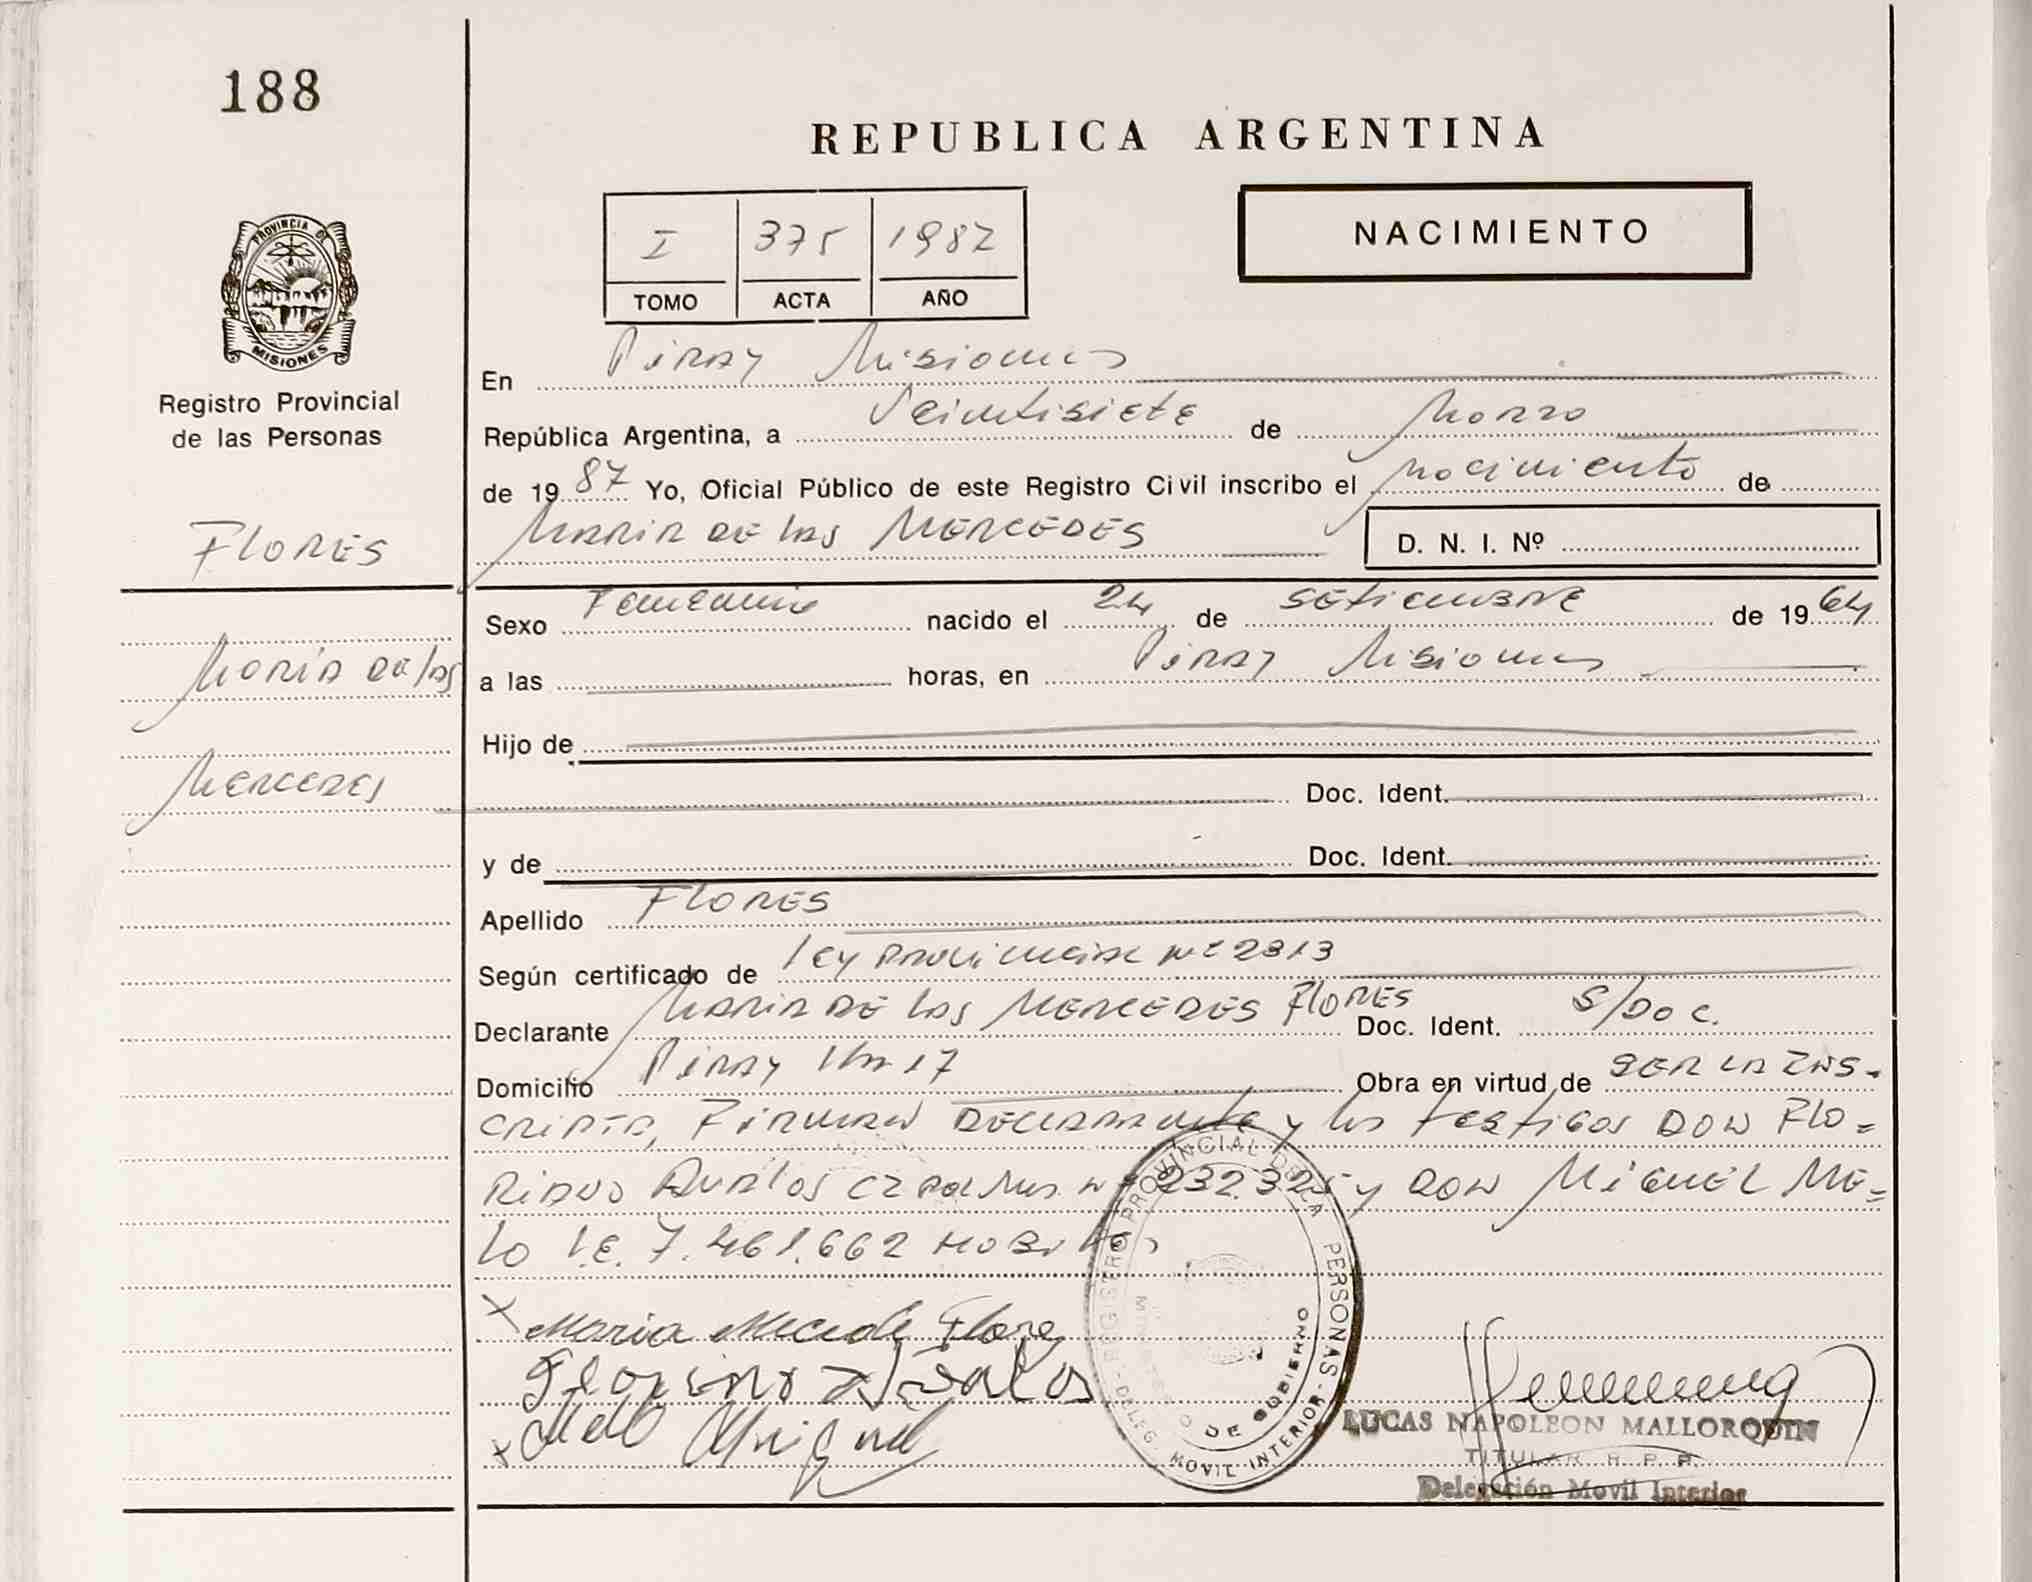 188
PROVINCIA DE
MISIONES
Registro Provincial
de las Personas
FLORES
María de las
Mercedes
REPUBLICA ARGENTINA
I 375 1987
TOMO ACTA AÑO
NACIMIENTO
En Piray Misiones
República Argentina, a Veintisiete de Marzo
de 1987 Yo, Oficial Público de este Registro Civil inscribo el nacimiento de
Maria de las MERCEDES D. N. I. Nº
Sexo Femenino nacido el 24 de SETIEMBRE de 1964
a las horas, en Piray Misiones
Hijo de
Doc. Ident.
y de Doc. Ident.
Apellido FLORES
Según certificado de ley provincial Nº 2313
Declarante Maria de las MERCEDES FLORES Doc. Ident. S/Doc.
Domicilio Piray Km 17 Obra en virtud de SER LA INS-
CRIPTA, Firman DECLARANTE y los testigos DON FLO=
RIANO AVALOS CI Pol Mis. Nº 232.325 y DON MIGUEL ME=
LO L.E. 7.461.662 
x Maria Mecede Flore
Avalos
x Melo Miguel
REGISTRO PROVINCIAL DE LA PERSONAS
MINISTERIO DE GOBIERNO
-DELEG. MOVIL INTERIOR-
LUCAS NAPOLEON MALLORQUIN
TITULAR R. P. P.
Delegación Movil Interior